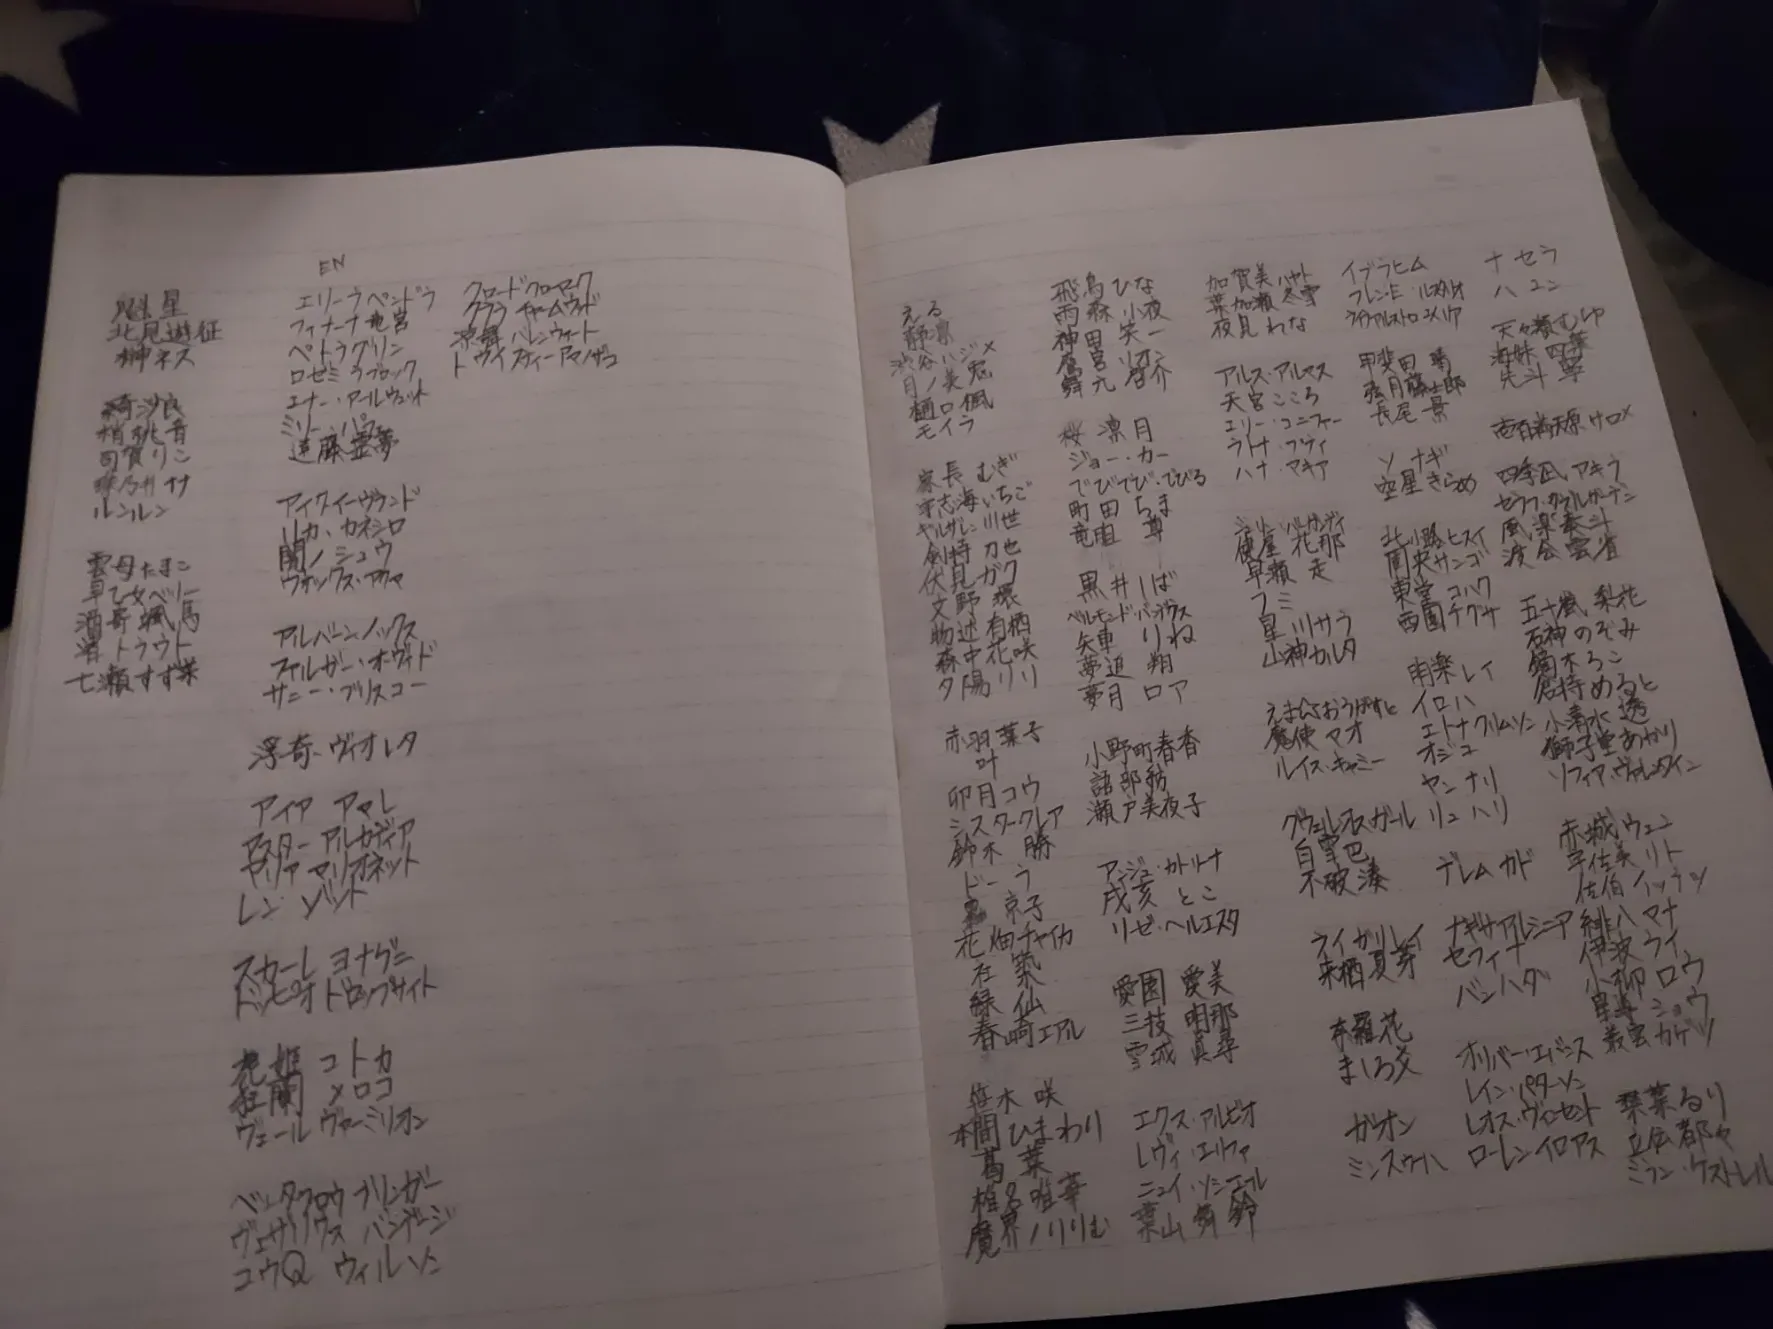 魁星
北見遊征
榊ネス
綺沙良
梢桃音
司賀りこ
珠乃井ナナ
ルンルン
雲母たまこ
早乙女ベリー
酒寄颯馬
渚トラウト
七瀬すず菜
EN
エリーラ ペンドラ
フィナーナ 竜宮
ペトラ グリン
ロゼミ ラブロック
エナー・アールウェット
ミリー・パフェ
遠藤霊夢
アイクイーヴランド
ルカ・カネシロ
闇ノシュウ
ヴォックス・アクマ
アルバーンノックス
ファルガー・オーヴィド
サニー・ブリスコー
浮奇・ヴィオレタ
アイア アマレ
アスター アルカディア
マリア マリオネット
レン ゾット
スカーレ ヨナグニ
ドッピオ ドロップサイト
虎姫 コトカ
狂蘭 メロコ
ヴェール ヴァーミリオン
ベルタクロウ ブリンガー
ヴェザリウス バンデージ
コウQ ウィルソン
クロードクローマク
ククラ チャームウッド
凉舞 ハレンウォート
トゥイスティーアマノザコ
える
静 凛
渋谷ハジメ
月ノ美兎
樋口楓
モイラ
家長むぎ
宇志海いちご
ギルザレン川世
剣持刀也
伏見ガク
文野環
物述有栖
森中花咲
夕陽リリ
赤羽葉子
叶
卯月コウ
シスタークレア
鈴木勝
ドーラ
京子
花畑チャイカ
社築
緑仙
春崎エアル
笹木咲
本間ひまわり
葛葉
椎名唯華
魔界ノりりむ
飛鳥ひな
雨森小夜
神田笑一
鷹宮リオン
舞元啓介
桜凛月
ジョー・カー
でびでび・でびる
町田ちま
竜胆尊
黒井しば
ベルモンド・バンデラス
矢車りね
夢追翔
夢月ロア
小野町春香
語部紡
瀬戸美夜子
アンジュ・カトリーナ
戌亥とこ
リゼ・ヘルエスタ
愛園愛美
三枝明那
雪城真尋
エクス・アルビオ
レヴィ・エリファ
ニュイ・ソシエール
葉山舞鈴
加賀美ハヤト
葉加瀬冬雪
夜見れな
アルス・アルマル
天宮こころ
エリー・コニファー
ラトナ・プティ
ハナ・マキア
シェリン・バーガンディ
使屋花那
早瀬走
フミ
星川サラ
山神カルタ
えま★おうがすと
魔使マオ
ルイス・キャミー
グウェル・オスガール
白雪巴
不破湊
ライガリレイ
来栖夏芽
奈羅花
ましろ爻
ガオン
ミンスゥーハ
イブラヒム
フレン・E・ルスタリオ
甲斐田晴
弦月藤士郎
長尾景
ソナギ
空星きらめ
北小路ヒスイ
東堂コハク
西園チグサ
明楽レイ
イロハ
エトナクリムソン
オジユ
ヤンナリ
リュハリ
デレムカド
ナギサアルシニア
セフィナ
バンハダ
オリバー・エバンス
レイン・パターソン
レオス・ヴィンセント
ローレンイロアス
ナセラ
ハユン
天ヶ瀬むゆ
海妹四葉
先斗寧
壱百満天原サロメ
四季凪アキラ
風楽奏斗
渡会雲雀
五十嵐梨花
石神のぞみ
鏑木ろこ
倉持めると
小清水透
獅子堂あかり
ソフィア・ヴァレンタイン
赤城ウェン
宇佐美リト
佐伯イッテツ
緋八マナ
伊波ライ
小柳ロウ
星導ショウ
叢雲カゲツ
栞葉るり
立伝都々
ミラン・ケストレル